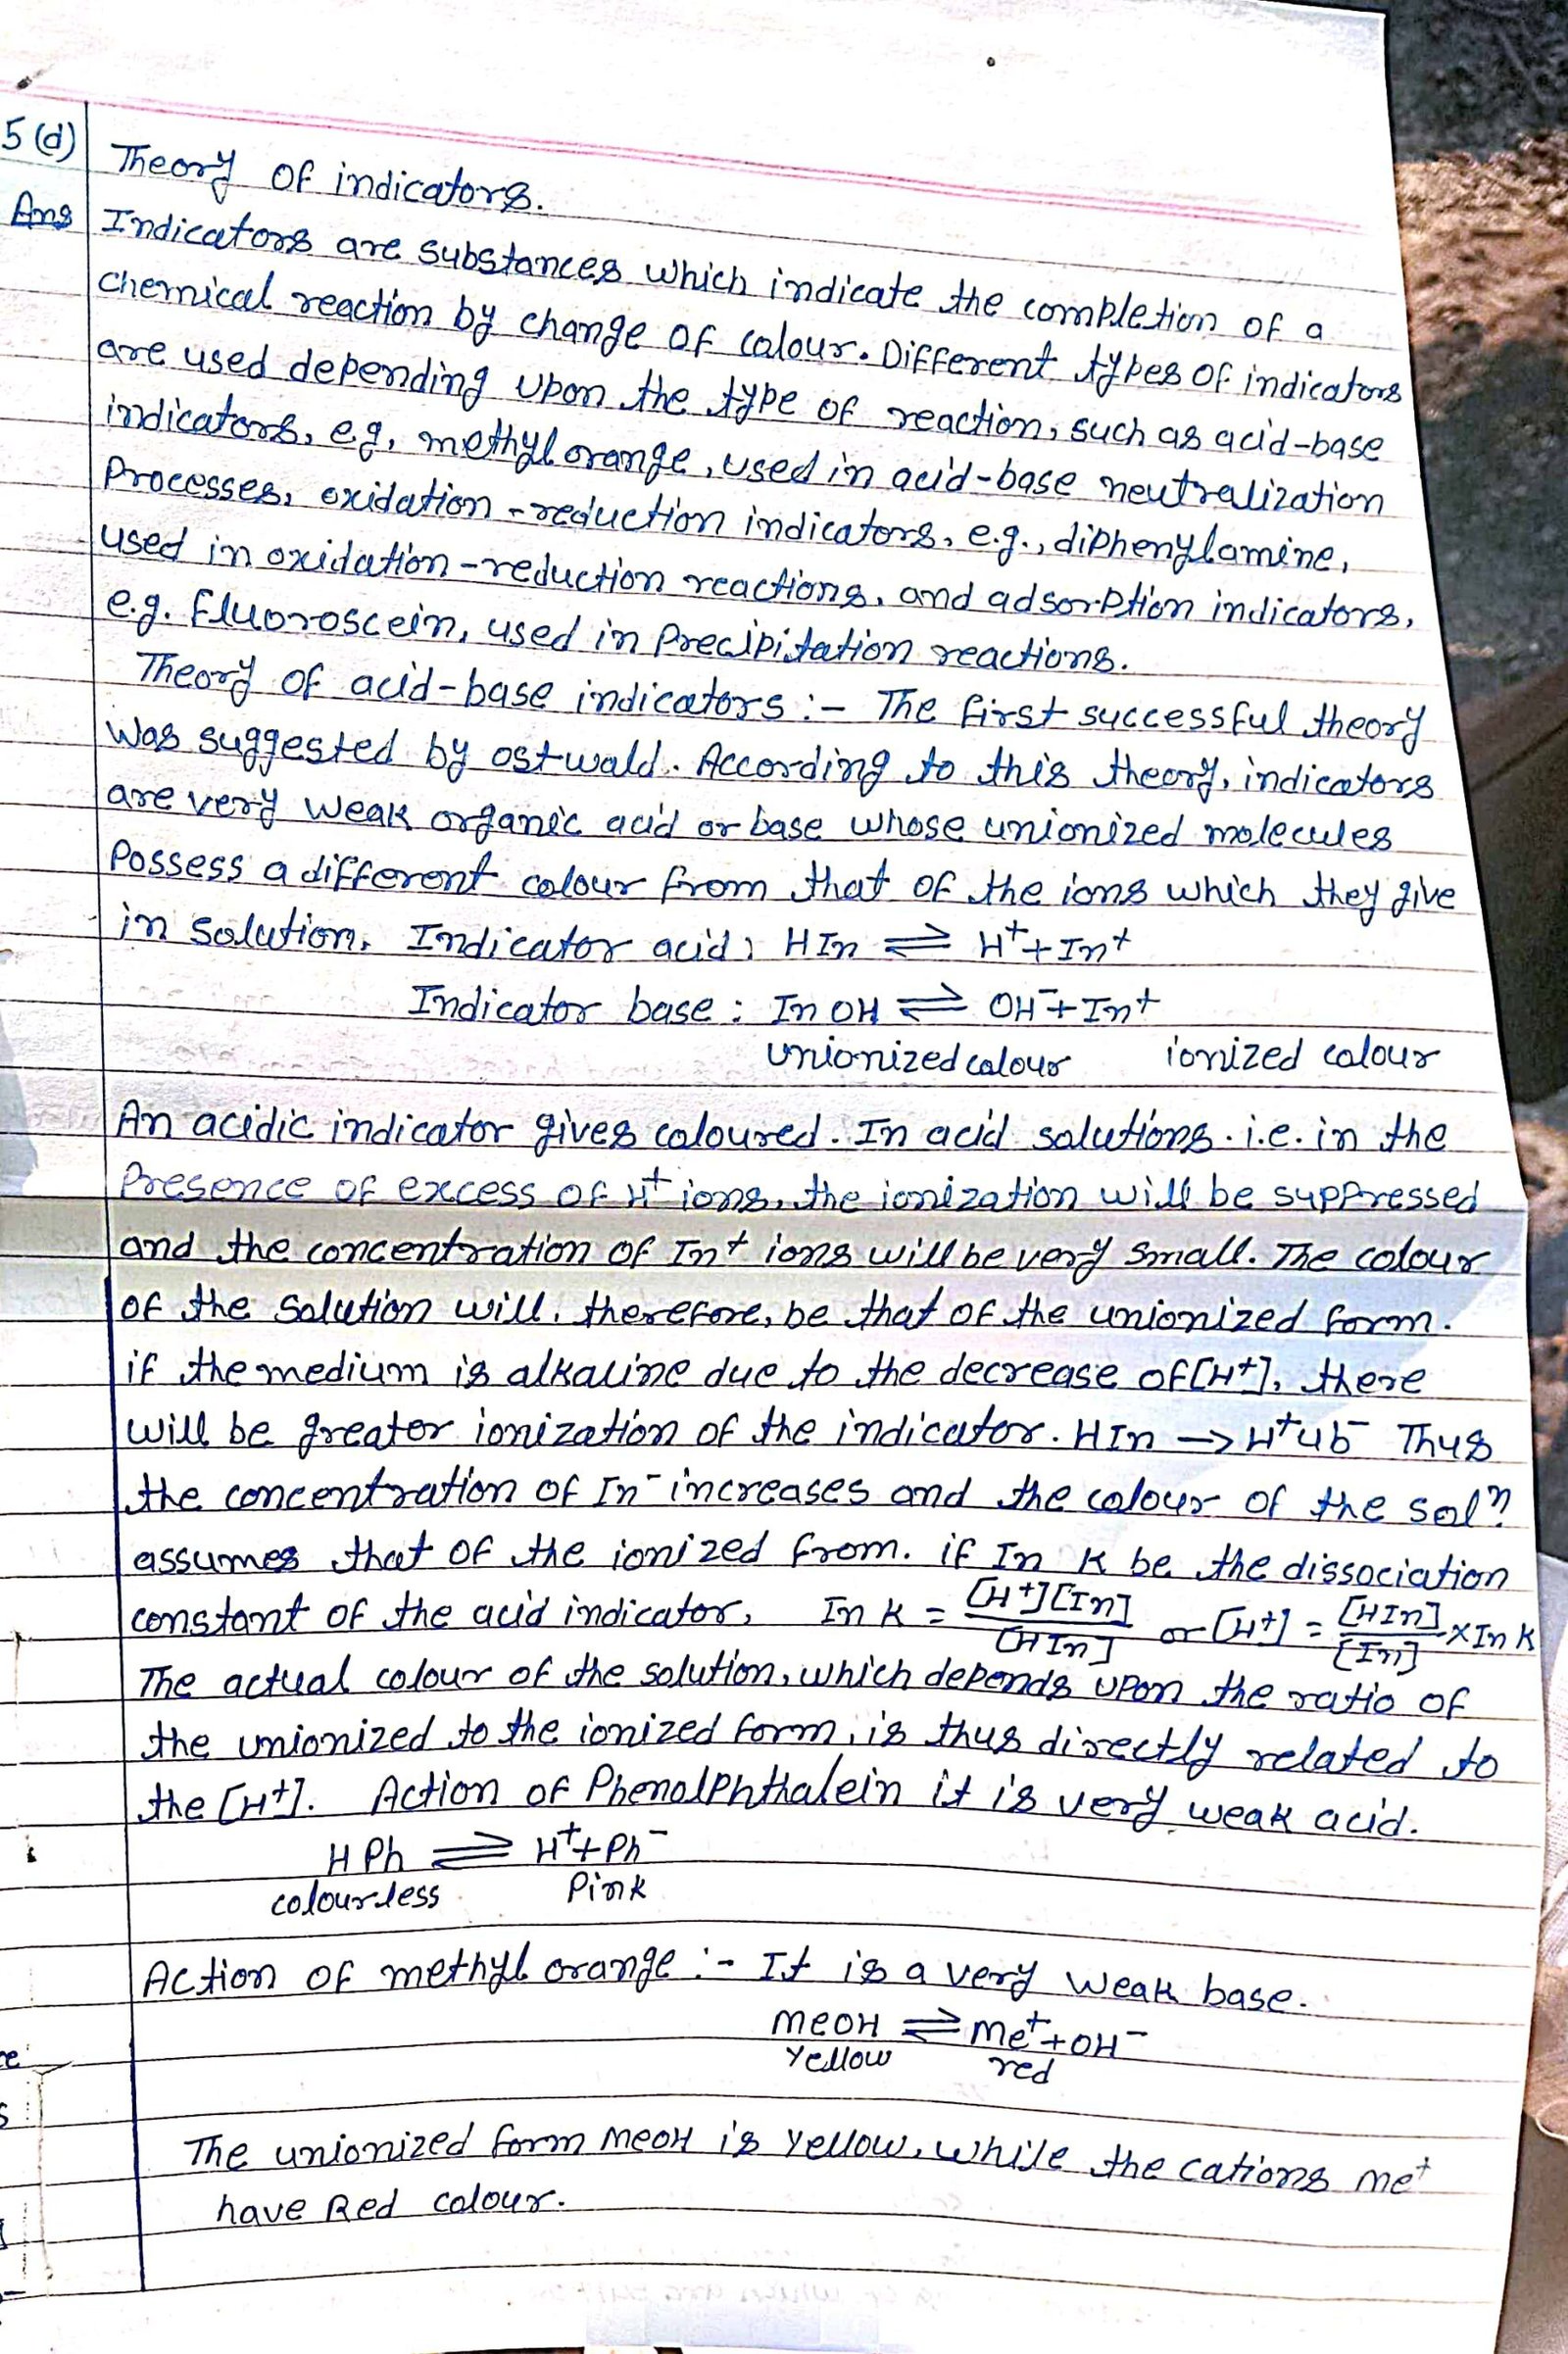 5(d) Theory of indicators.
Ans Indicators are substances which indicate the completion of a
chemical reaction by change of colour. Different types of indicators
are used depending upon the type of reaction, such as acid-base
indicators, e.g. methyl orange, used in acid-base neutralization
Processes, oxidation-reduction indicators, e.g., diphenylamine,
used in oxidation-reduction reactions, and adsorption indicators,
e.g. fluoroscein, used in Precipitation reactions.
Theory of acid-base indicators :- The first successful theory
was suggested by ostwald. According to this theory, indicators
are very weak organic acid or base whose unionized molecules
Possess a different colour from that of the ions which they give
in solution. Indicator acid: HIn ⇌ H⁺+In⁺
Indicator base : InOH ⇌ OH⁻+In⁺
unionized colour ionized colour
An acidic indicator gives coloured. In acid solutions. i.e. in the
Presence of excess of H⁺ ions, the ionization will be suppressed
and the concentration of In⁺ ions will be very small. The colour
of the solution will, therefore, be that of the unionized form.
if the medium is alkaline due to the decrease of [H⁺], there
will be greater ionization of the indicator. HIn → H⁺ub⁻ Thus
the concentration of In⁻ increases and the colour of the solⁿ
assumes that of the ionized from. if In K be the dissociation
constant of the acid indicator, In K = [H⁺][In]/[HIn] or [H⁺] = [HIn]/[In] × In K
The actual colour of the solution, which depends upon the ratio of
the unionized to the ionized form, is thus directly related to
the [H⁺]. Action of Phenolphthalein it is very weak acid.
HPh ⇌ H⁺+Ph⁻
colourless Pink
Action of methyl orange :- It is a very weak base.
MeOH ⇌ Me⁺+OH⁻
Yellow red
The unionized form MeOH is yellow, while the cations Me⁺
have Red colour.